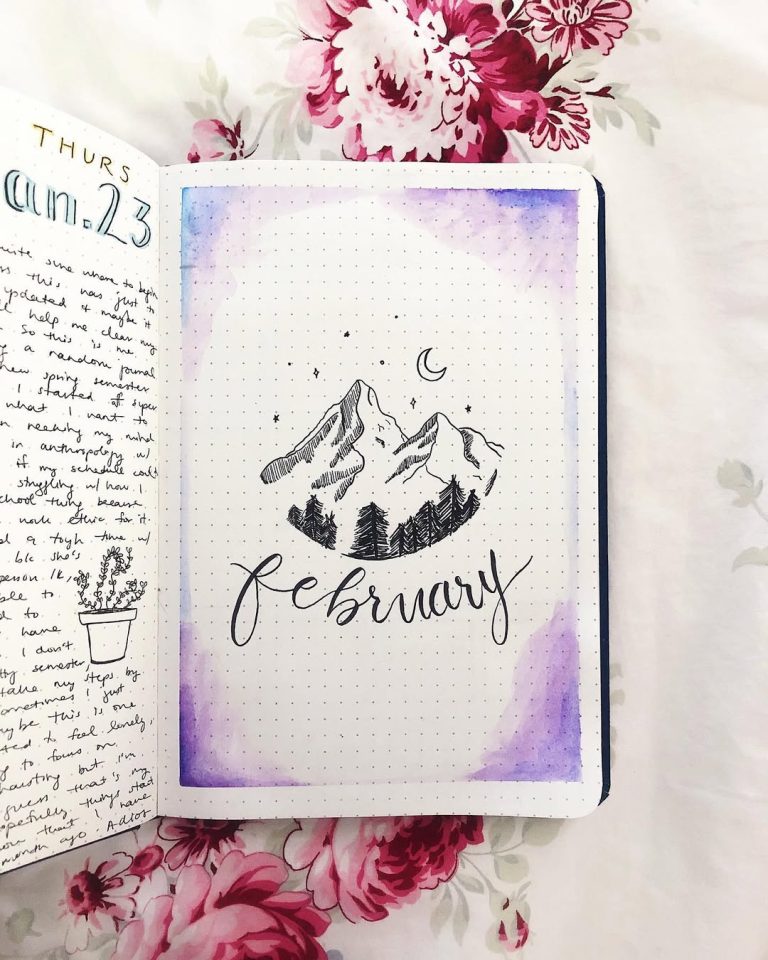 THURS
an.23
quite sure where to begin
ss this was just to
updated & maybe it
ll help me clear my
. So this is me
g a random journal
new spring semester
I started off super
what I want to
n reaching my mind
in anthropology w/
if my schedule could
struggling w/ how I
school thing because
work ethic for it
d a togh time w/
blc she's
person lk,
ble to
d to
have
I don't
tty semester,
take my steps by
sometimes I just
aybe this is one
ted to feel lonely,
g to focus on
hausting but I'm
guess that's my
opefully things start
now that I have
month ago. Adios
february